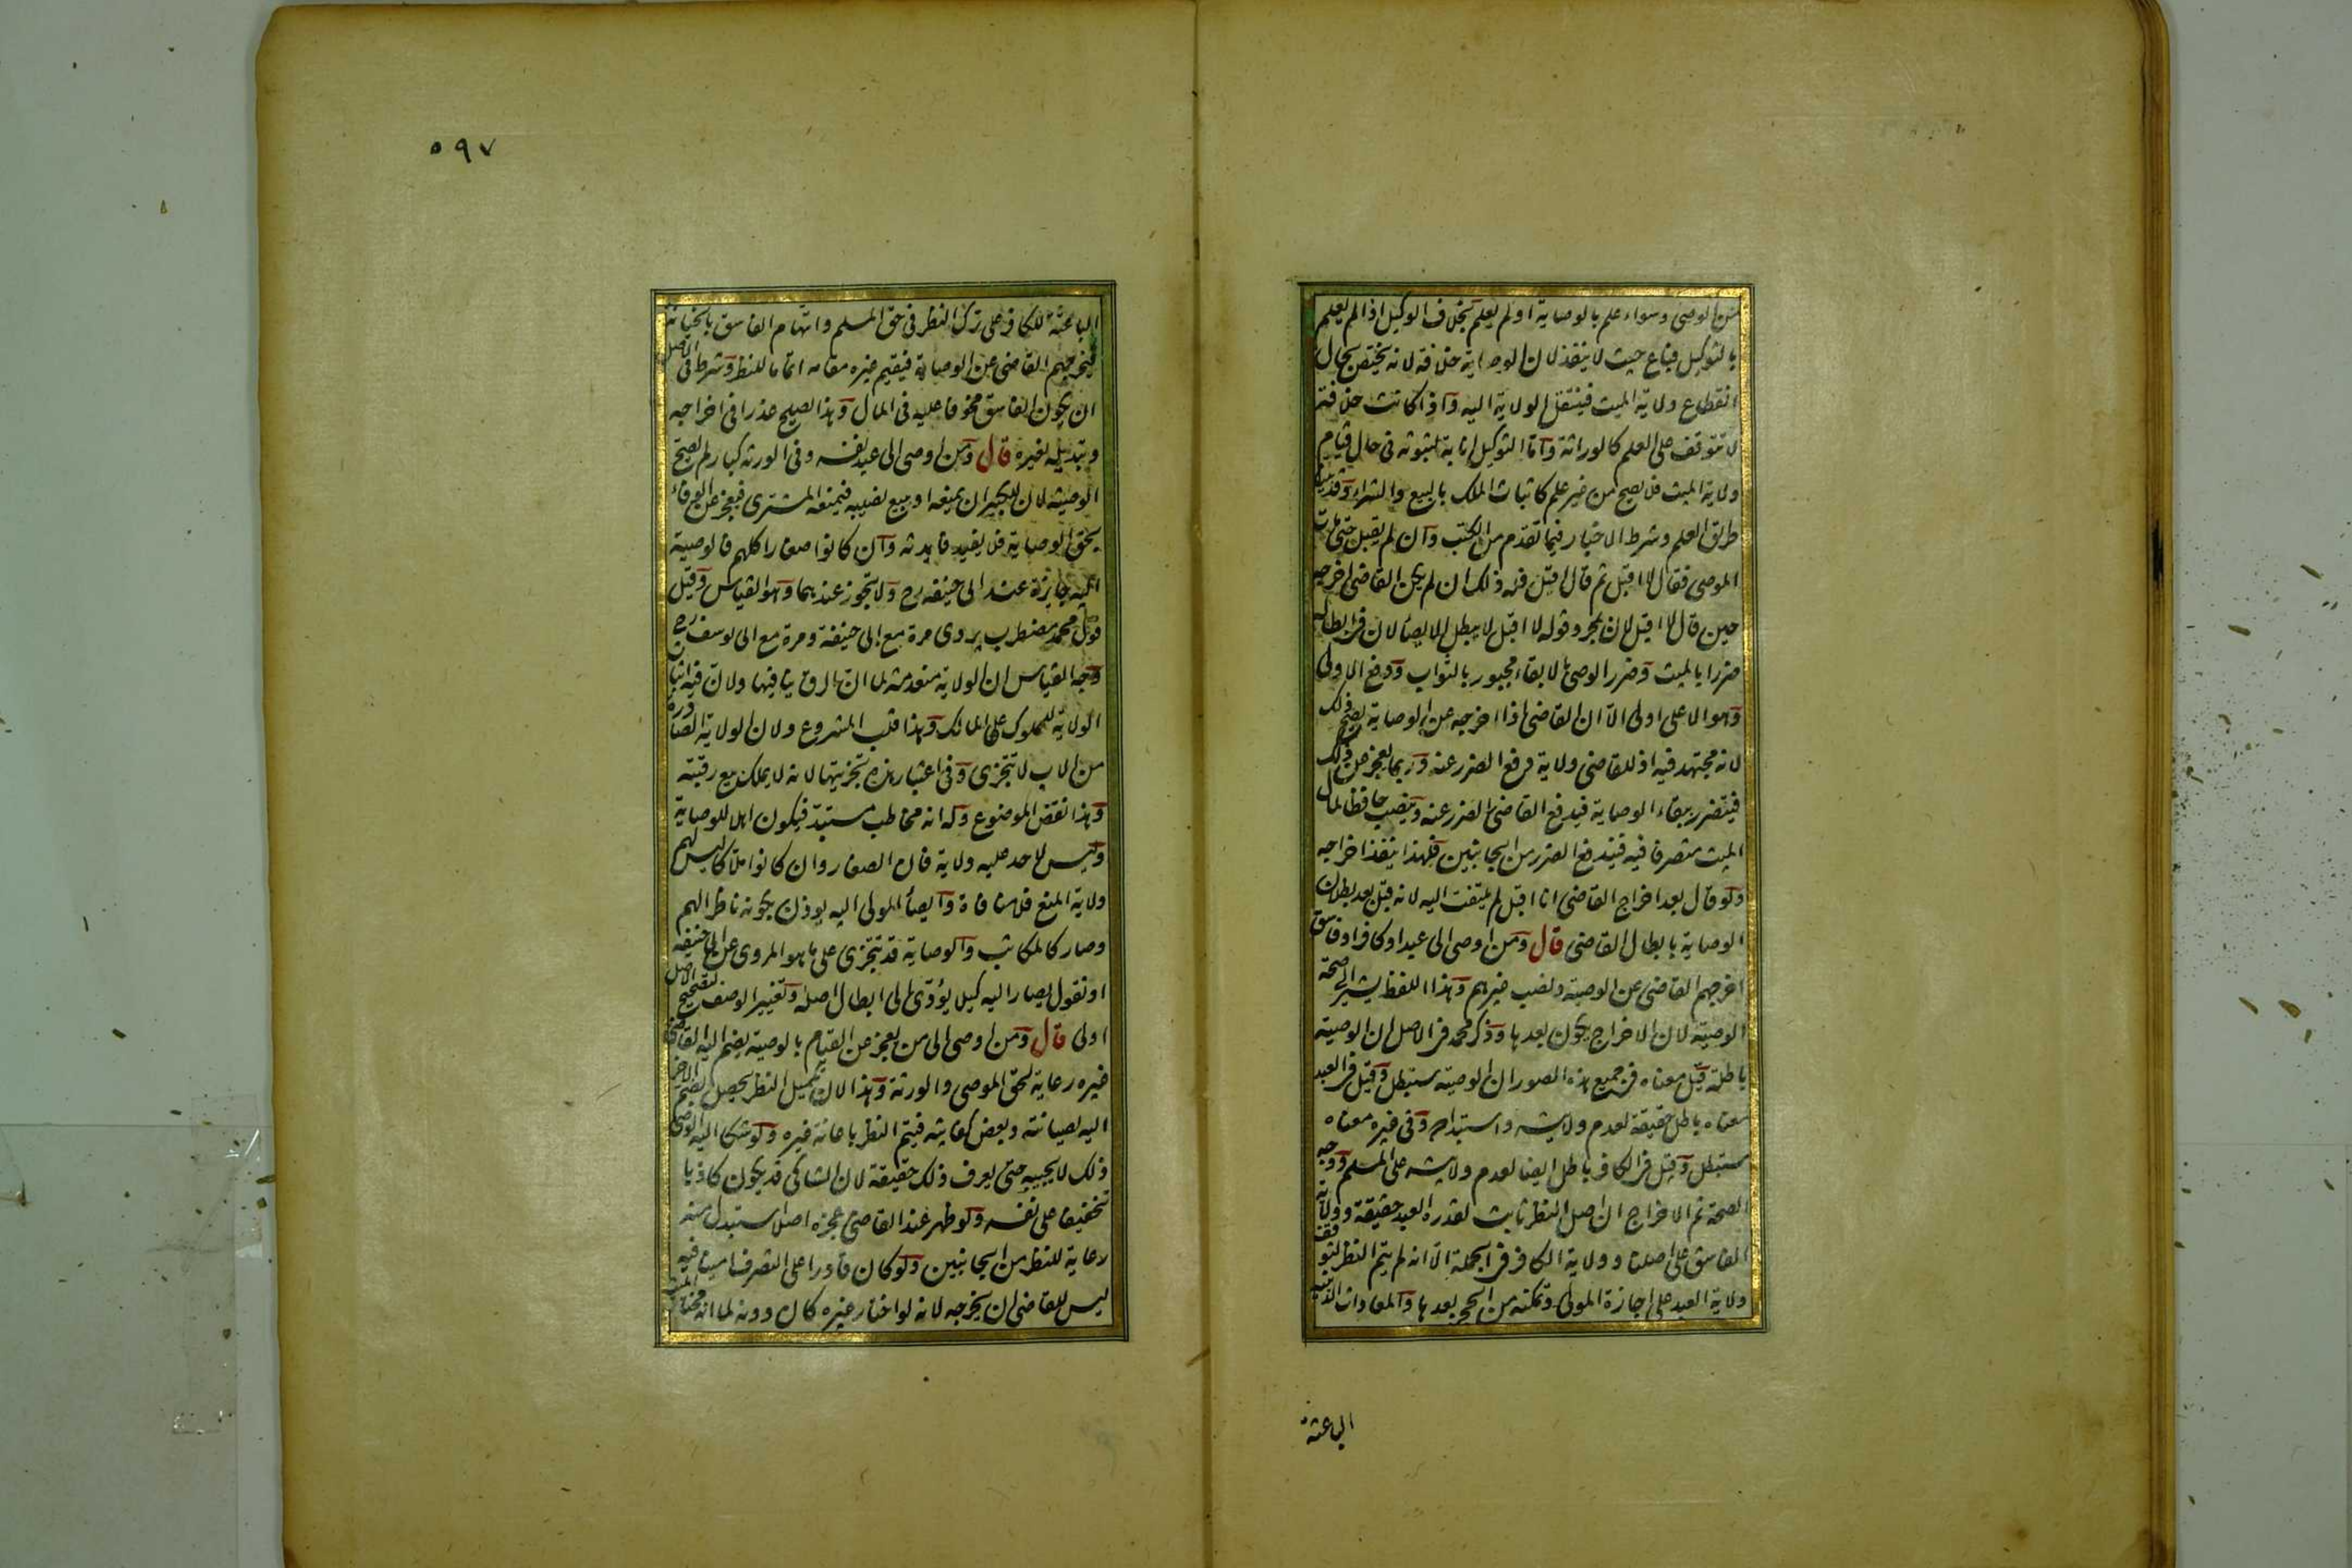 من الوصي وسواء علم بالوصاية او لم يعلم بخلاف الوكيل اذا لم يعلم
بالتوكيل فباع حيث لا ينفذ لان الوصاية خلافة لانه يختص بحال
انقطاع ولاية الميت فينتقل الولاية اليه واذا كانت خلافة
لا تتوقف على العلم كالوراثة واما التوكيل انابة لثبوته في حال قيام
ولاية الميت فلا يصح من غير علم كاثبات الملك بالبيع والشراء وقد بينا
طريق العلم وشرط الاخبار فيما تقدم من الكتب وان لم يقبل حتى مات
الموصي فقال لا اقبل ثم قال اقبل فله ذلك ان لم يكن القاضي اخرجه
حين قال لا اقبل لان بمجرد قوله لا اقبل لا يبطل الايصاء لان في ابطاله
ضررا بالميت وضرر الوصي في الابقاء مجبور بالثواب ودفع الاولى
وهو الاعلى اولى الا ان القاضي اذا اخرجه عن الوصاية يصح ذلك
لانه مجتهد فيه اذ للقاضي ولاية دفع الضرر عنه وربما يعجز عن ذلك
فيتضرر ببقاء الوصاية فيدفع القاضي الضرر عنه وينصب حافظا لمال
الميت متصرفا فيه فيندفع الضرر من الجانبين فلهذا ينفذ اخراجه
ولو قال بعد اخراج القاضي انا اقبل لم يلتفت اليه لانه قبل بعد بطلان
الوصاية بابطال القاضي قال ومن اوصى الى عبد او كافر او فاسق
اخرجهم القاضي عن الوصية ونصب غيرهم وهذا اللفظ يشير الى صحة
الوصية لان الاخراج يكون بعدها وذكر محمد في الاصل ان الوصية
باطلة قيل معناه في جميع هذه الصور ان الوصية ستبطل وقيل في العبد
معناه باطل حقيقة لعدم ولايته واستبداده وفي غيره معناه
ستبطل وقيل في الكافر باطل ايضا لعدم ولايته على المسلم ووجه
الصحة ثم الاخراج ان اصل النظر ثابت لقدرة العبد حقيقة وولاية
الفاسق على اصلنا وولاية الكافر في الجملة الا انه لم يتم النظر لتوقف
ولاية العبد على اجازة المولى وتمكنه من الحجر بعدها والمعاداة الدينية
الباعثة
٥٩٧
الباعثة للكافر على ترك النظر في حق المسلم واتهام الفاسق بالخيانة
فيخرجهم القاضي عن الوصاية فيقيم غيره مقامه اتماما للنظر وشرط في الاصل
ان يكون الفاسق مخوفا عليه في المال وهذا يصلح عذرا في اخراجه
وتبديله لغيره قال ومن اوصى الى عبد نفسه وفي الورثة كبار لم يصح
الوصية لان للكبير ان يمنعه او يبيع نصيبه فيمنعه المشتري فيعجز عن الوفاء
بحق الوصاية فلا يفيد فايدته وان كانوا صغارا كلهم فالوصية
اليه جايزة عند ابي حنيفة رح ولا تجوز عندهما وهو القياس وقيل
قول محمد مضطرب يروى مرة مع ابي حنيفة ومرة مع ابي يوسف رح
وجه القياس ان الولاية منعدمة لما ان الرق ينافيها ولان فيه اثبات
الولاية للمملوك على المالك وهذا قلب المشروع ولان الولاية الصادرة
من الاب لا تتجزى وفي اعتبار هذه تجزيتها لانه لا يملك بيع رقبته
وهذا نقض الموضوع وله انه مخاطب مستبد فيكون اهلا للوصاية
وليس لاحد عليه ولاية فان الصغار وان كانوا ملاكا ليس لهم
ولاية المنع فلا منافاة وايصاء المولى اليه يوذن بكونه ناظرا لهم
وصار كالمكاتب والوصاية قد تتجزى على ما هو المروي عن ابي حنيفة
او نقول يصار اليه كيلا يؤدى الى ابطال اصله وتغيير الوصف لتصحيح الاصل
اولى قال ومن اوصى الى من يعجز عن القيام بالوصية يضم اليه القاضي
غيره رعاية لحق الموصي والورثة وهذا لان تكميل النظر يحصل بضم الاخر
اليه لصيانته وبعض كفايته فيتم النظر باعانة غيره ولو شكا اليه الوصي
ذلك لا يجيبه حتى يعرف ذلك حقيقة لان الشاكي قد يكون كاذبا
تخفيفا على نفسه ولو ظهر عند القاضي عجزه اصلا استبدل منه
رعاية للنظر من الجانبين ولو كان قادرا على التصرف امينا فيه
ليس للقاضي ان يخرجه لانه لو اختار غيره كان دونه لما انه مختار الميت